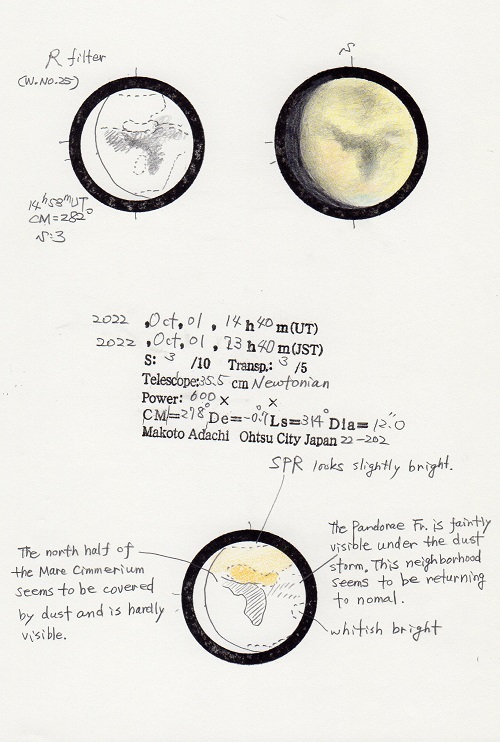 R filter
(W.No.25)
S
14h58mUT
CM=282°
S:3
2022 ,Oct, 01 , 14 h 40 m(UT)
2022 ,Oct, 01 , 23 h 40 m(JST)
S: 3 /10 Transp.: 3 /5
Telescope:35.5 cm Newtonian
Power: 600 × ×
CM=278° De=-0.7° Ls=314° Dia=12.0"
Makoto Adachi Ohtsu City Japan 22-202
SPR looks slightly bright.
The north half of
the Mare Cimmerium
seems to be covered
by dust and is hardly
visible.
The Pandorae Fr. is faintly
visible under the dust
storm. This neighborhood
seems to be returning
to nomal.
whitish bright